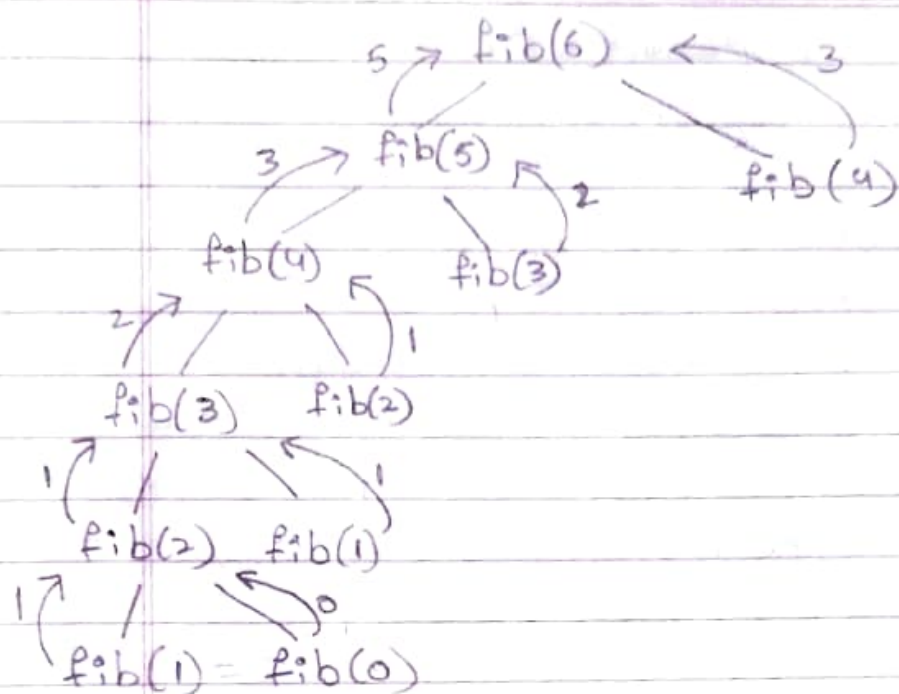 5 fib(6) 3
3 fib(5) 2
fib(4)
fib(4) fib(3)
2 1
fib(3) fib(2)
1 1
fib(2) fib(1)
1 0
fib(1) fib(0)